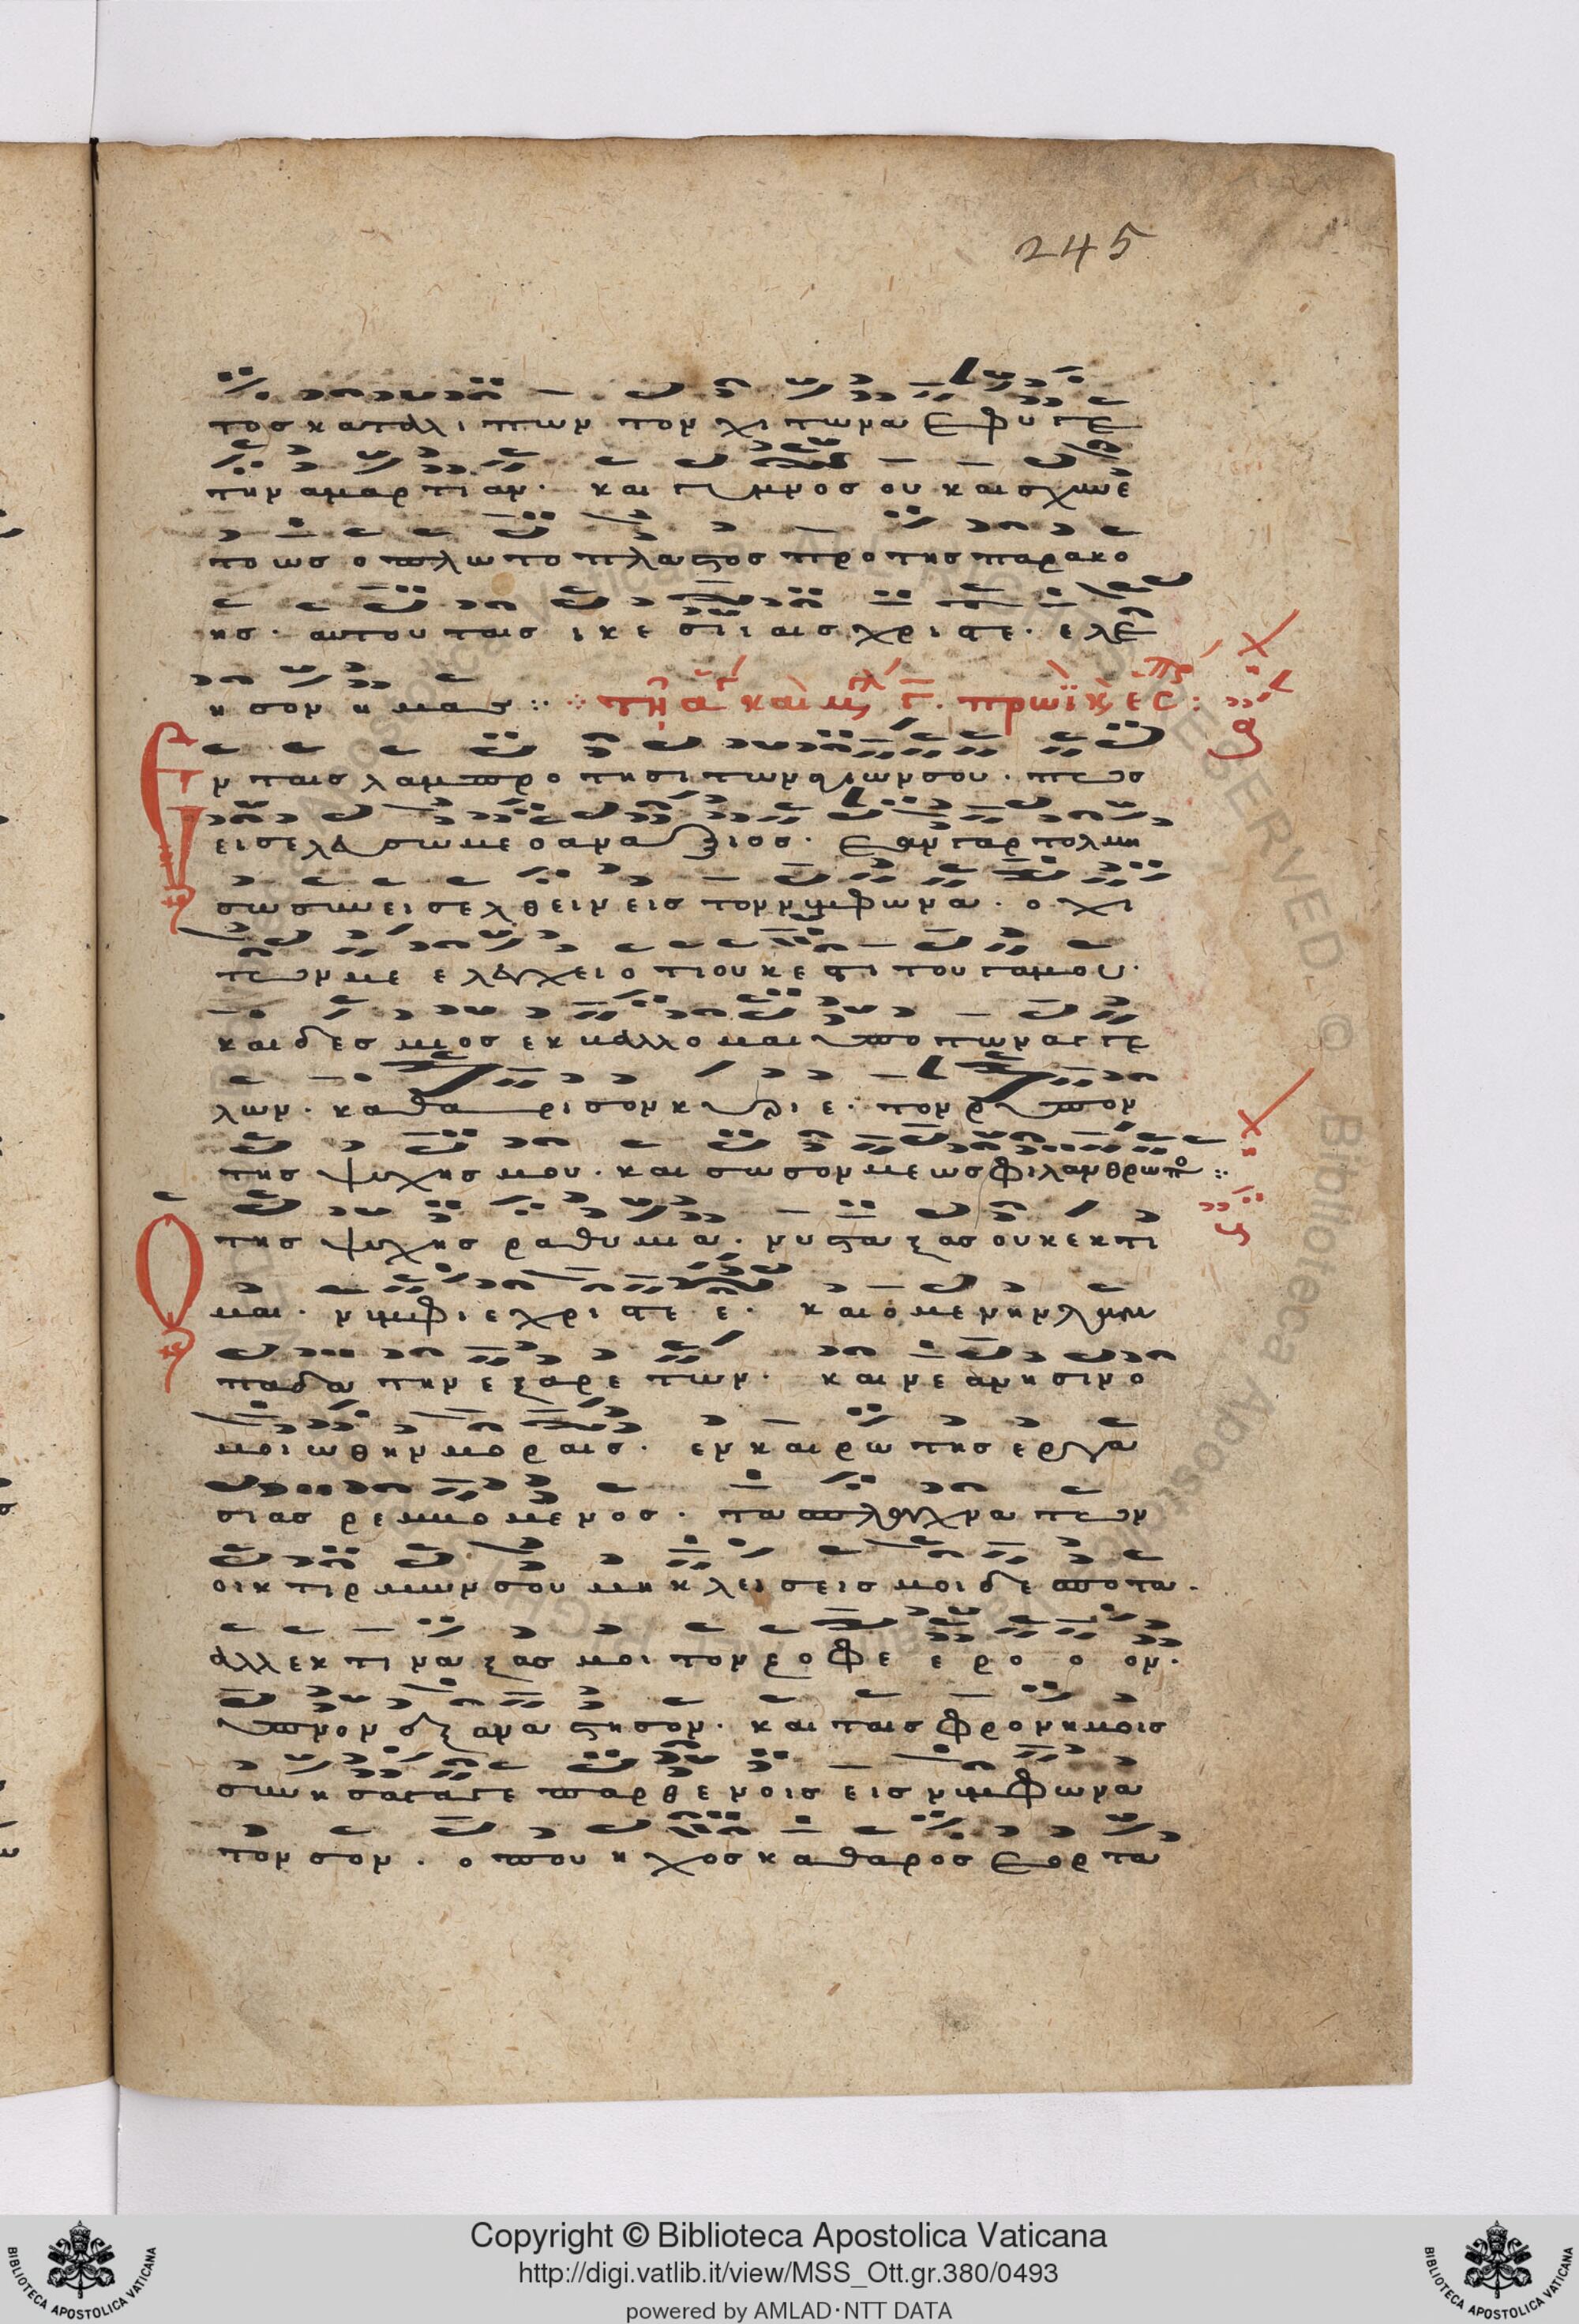 245
τος καταλιπων τον χιτωνα εφυγε
την αμαρτιαν· και γυμνος ουκ αισχυνε
το ως ο πλωτοπλαστος προ της παρακο
ης· αυτου ταις ικεσιιαις χριστε· ελε
ησον ημας :· τῇ ἁγ καὶ μγ γ. πρωϊ κ ες :
Εν ταις λαμπροτησι των αγιων σου· πως
εισελευσωμε ο αναξιος· εαν γαρ τολμη
σω συνεισελθειν εις τον νυμφωνα· ο χι
των με ελεγχει οτι ουκ εστι του γαμου·
και δεσμιος εκβαλλομαι υπο των αγγε
λων· καθαρισον κυριε· τον ρυπον
της ψυχης μου· και σωσον με ως φιλανθρωπο :·
Ο της ψυχης ραθυμια· νυσταξας ου κεκτι
μαι· νυμφιε χριστε ε· και ομενην λαμ
παδα την εξ αρετων· και νεανησιν ο
μοιωθην μοραις· εν καιρω της εργα
σιας ρεμβομενος· τα σπλαγχνα των
οικτιρμων σου μη κλεισεις μοι δεσποτα·
αλλ εκτιναξας μοι τον ζοφε ε ρο ο ον·
υπνον εξαναστησον· και ταις φρονημοις
συνησαγαγε παρθενοις εις νυμφωνα
τον σον· οπου ηχος καθαρος εορτα
Copyright © Biblioteca Apostolica Vaticana
http://digi.vatlib.it/view/MSS_Ott.gr.380/0493
powered by AMLAD·NTT DATA
BIBLIOTECA APOSTOLICA VATICANA
BIBLIOTECA APOSTOLICA VATICANA